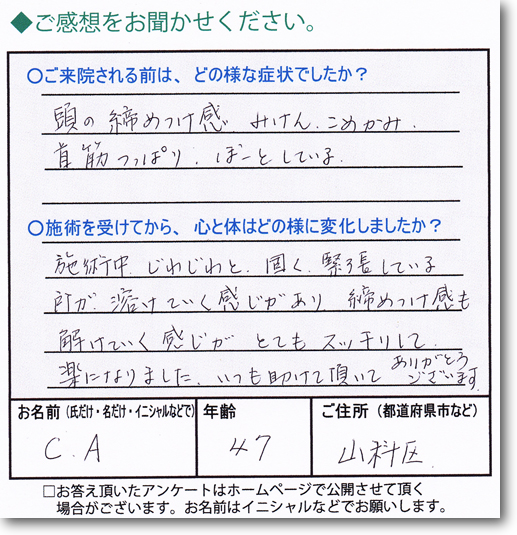 ◆ご感想をお聞かせください。
〇ご来院される前は、どの様な症状でしたか？
頭の締めつけ感 みけん、こめかみ、
首筋つっぱり、ぼーとしている。
〇施術を受けてから、心と体はどの様に変化しましたか？
施術中、じわじわと、固く、緊張している
所が、溶けていく感じがあり、締めつけ感も
解けていく感じが とても スッキリして、
楽になりました。いつも助けて頂いて ありがとう
ございます。
お名前（氏だけ・名だけ・イニシャルなどで） 年齢 ご住所（都道府県市など）
C.A 47 山科区
□お答え頂いたアンケートはホームページで公開させて頂く
場合がございます。お名前はイニシャルなどでお願いします。